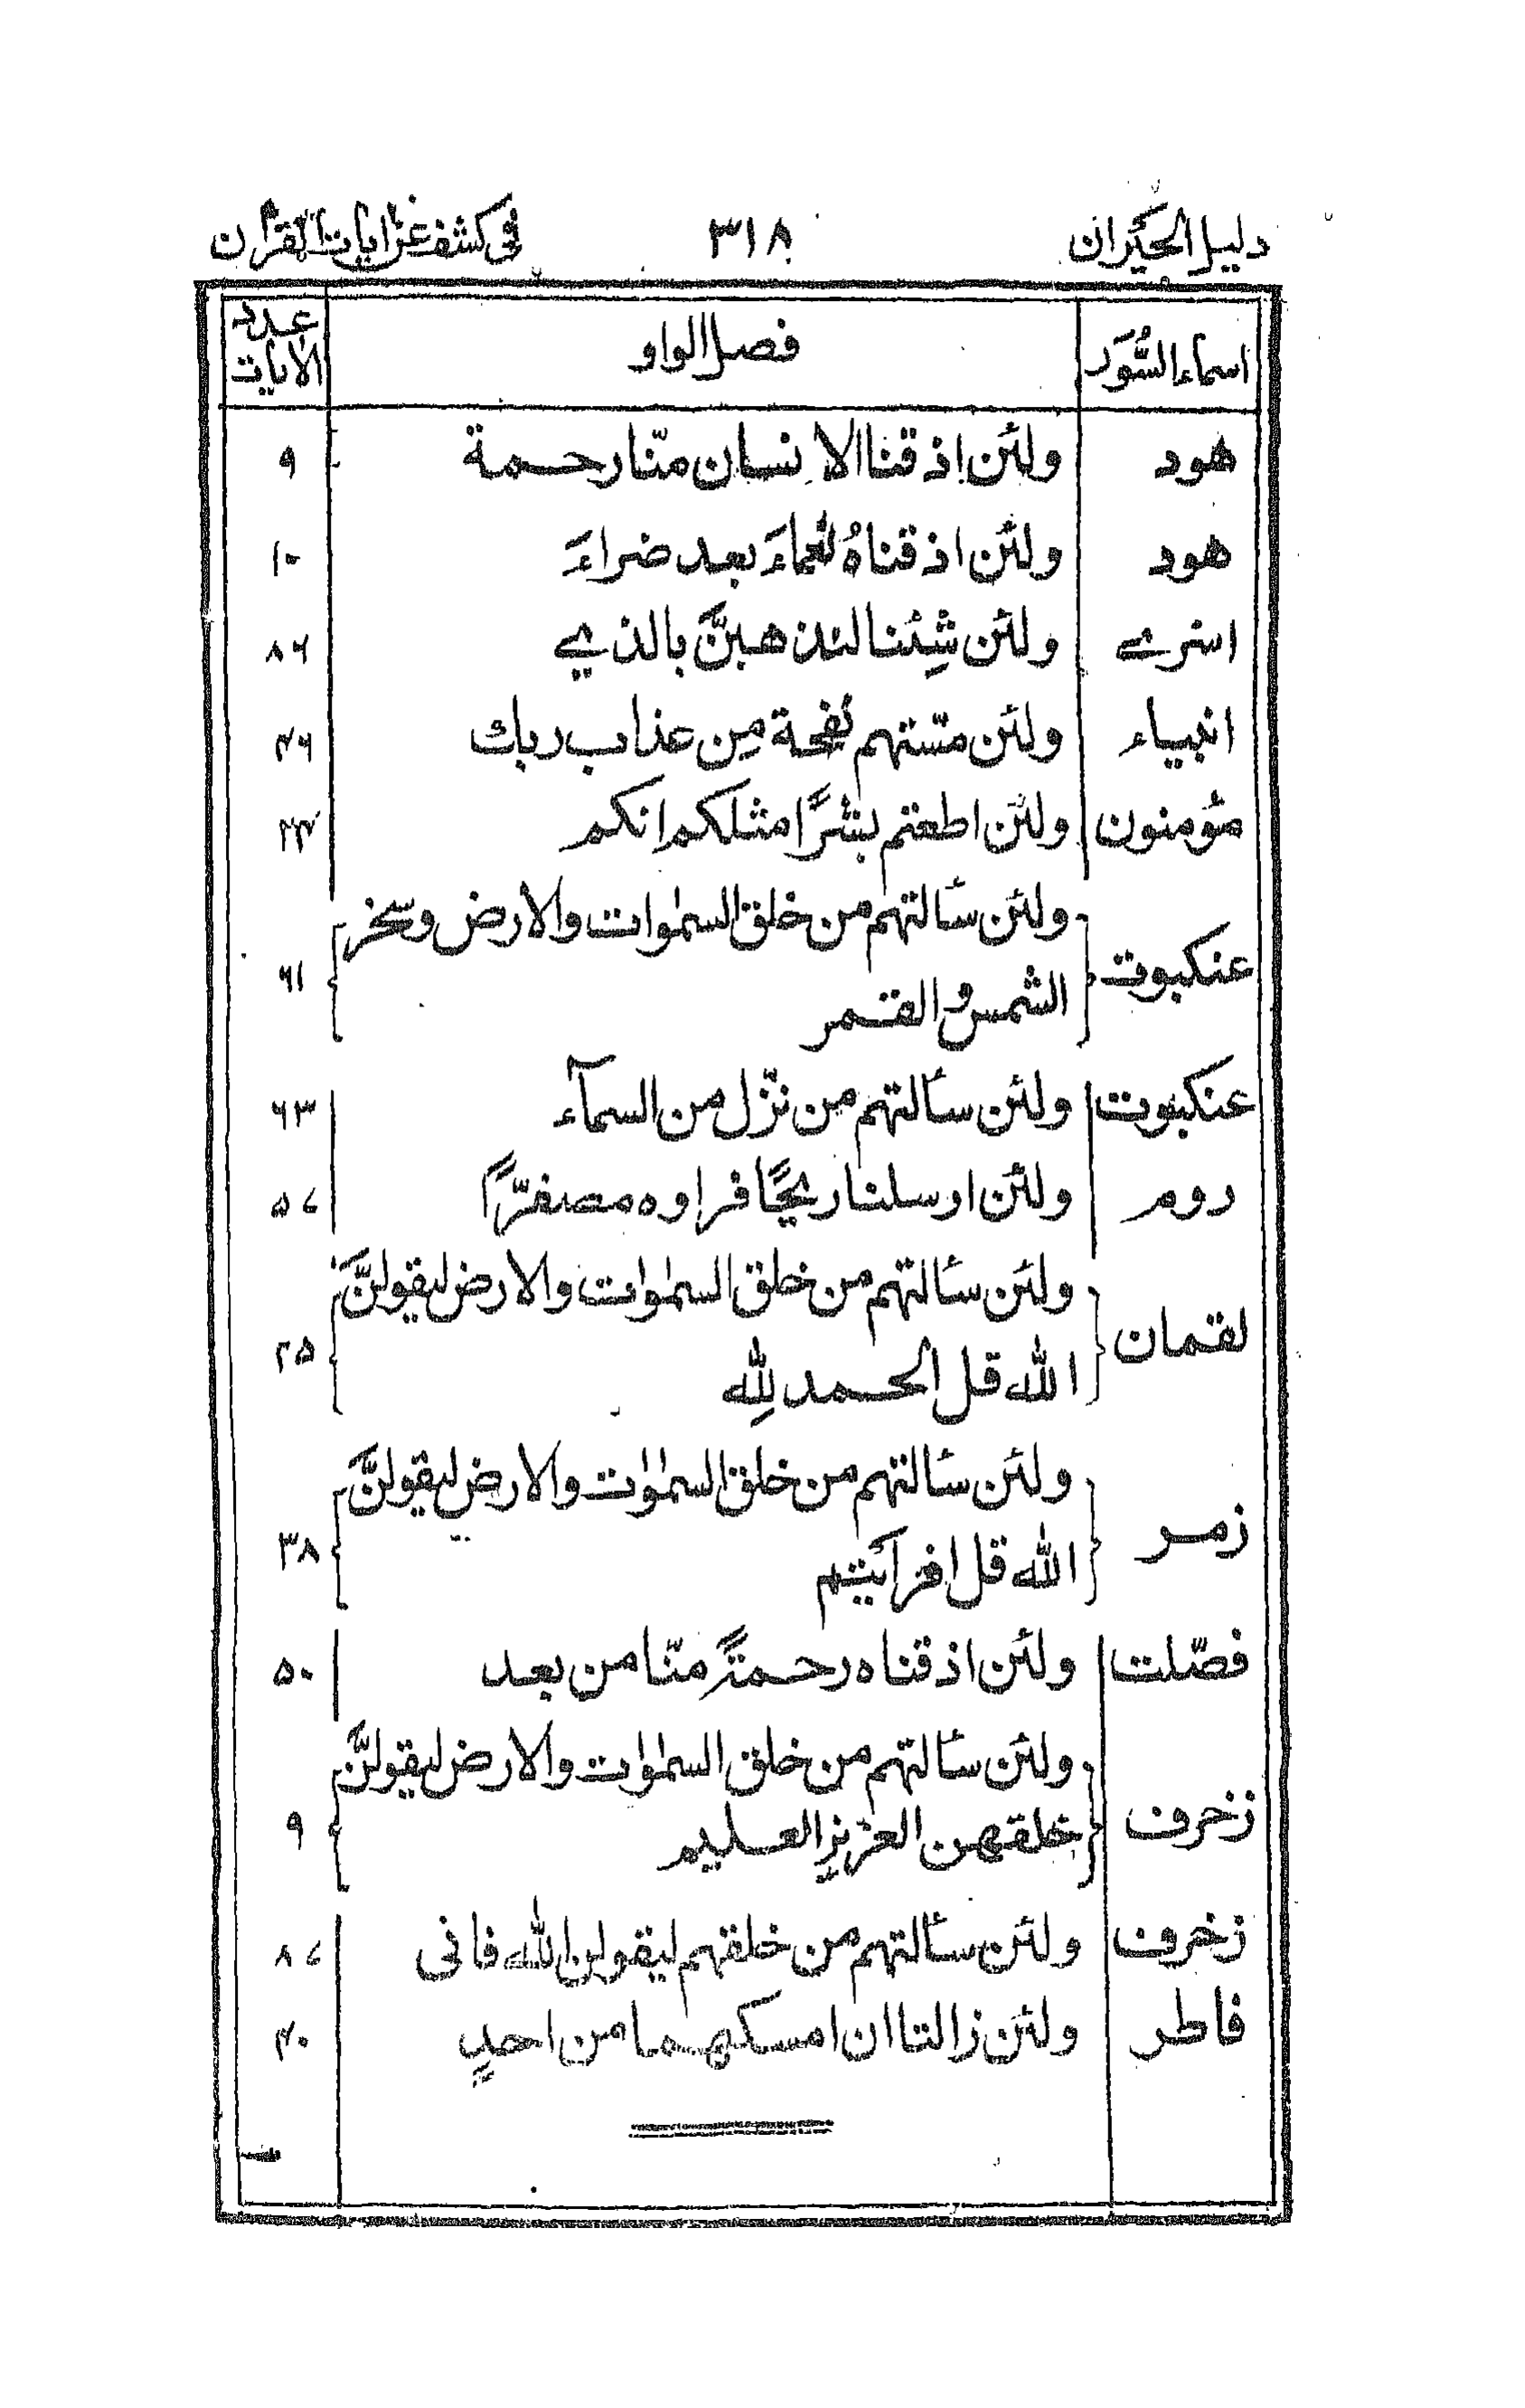 دليل الحيران ٣١٨ فى كشف عن ايات القرآن
اسماء السُّوَر فصل الواو عدد الايات
هود ولئن اذقنا الانسان منّا رحمة ٩
هود ولئن اذقناهُ نعماءَ بعد ضراءَ ١٠
اسرے ولئن شِئنا لنذهبنَّ بالذي ٨٦
انبياء ولئن مسّتهم نفحة مِن عذاب ربك ٤٦
مؤمنون ولئن اطعتم بشرًا مثلكم انكم ٣٤
عنكبوت ولئن سألتهم من خلق السمٰوات والارض وسخر
الشمس والقمر ٦١
عنكبوت ولئن سألتهم من نزّل من السمآء ٦٣
روم ولئن ارسلنا ريحًا فراوه مصفرّاً ٥١
لقمان ولئن سألتهم من خلق السمٰوات والارض ليقولنَّ
الله قل الحمد لِلّٰه ٢٥
زمر ولئن سألتهم من خلق السمٰوات والارض ليقولنَّ
الله قل افرأيتم ٣٨
فصّلت ولئن اذقناه رحمةً منّا من بعد ٥٠
زخرف ولئن سألتهم من خلق السمٰوات والارض ليقولنَّ
خلقهن العزيز العليم ٩
زخرف ولئن سألتهم من خلقهم ليقولن الله فانى ٨٧
فاطر ولئن زالتا ان امسكهما من احدٍ ٤٠